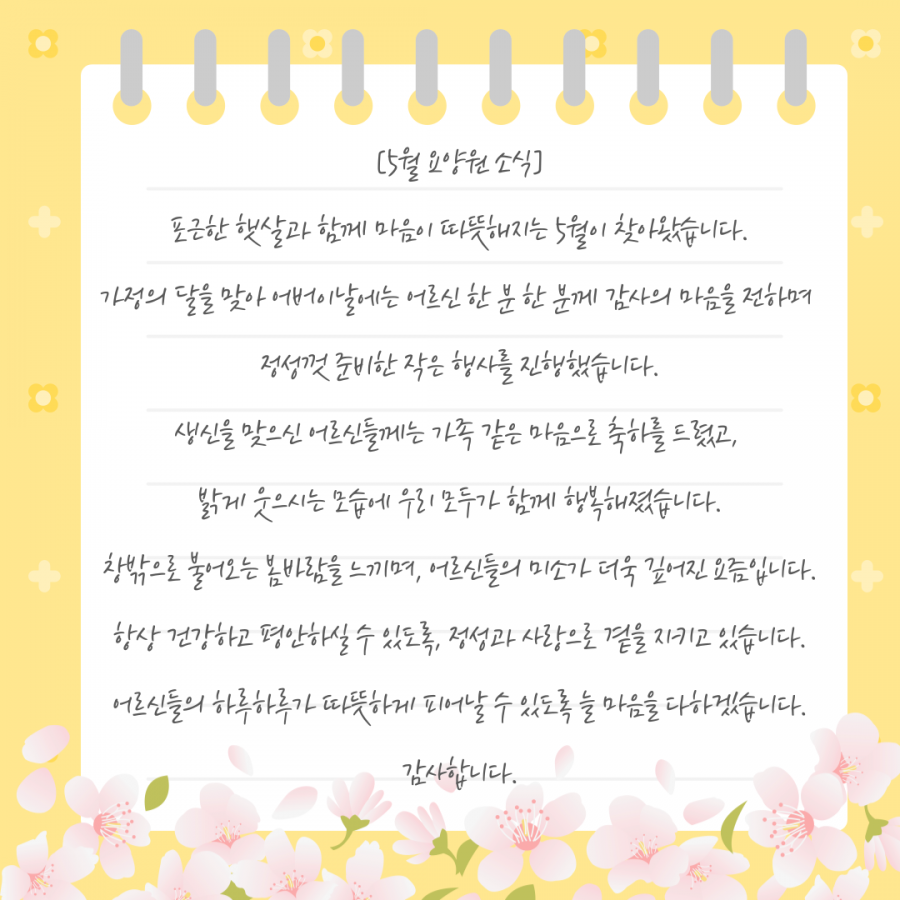 [5월 요양원 소식]
포근한 햇살과 함께 마음이 따뜻해지는 5월이 찾아왔습니다.
가정의 달을 맞아 어버이날에는 어르신 한 분 한 분께 감사의 마음을 전하며
정성껏 준비한 작은 행사를 진행했습니다.
생신을 맞으신 어르신들께는 가족 같은 마음으로 축하를 드렸고,
밝게 웃으시는 모습에 우리 모두가 함께 행복해졌습니다.
창밖으로 불어오는 봄바람을 느끼며, 어르신들의 미소가 더욱 깊어진 요즘입니다.
항상 건강하고 평안하실 수 있도록, 정성과 사랑으로 곁을 지키고 있습니다.
어르신들의 하루하루가 따뜻하게 피어날 수 있도록 늘 마음을 다하겠습니다.
감사합니다.